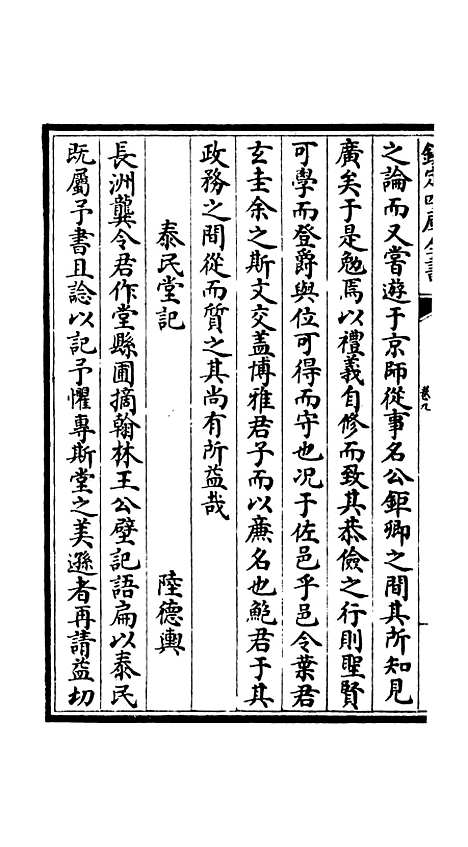 欽定四庫全書
卷九
之論而又嘗遊于京師從事名公鉅卿之間其所知見
廣矣于是勉焉以禮義自修而致其恭儉之行則聖賢
可學而登爵與位可得而守也况于佐邑乎邑令葉君
玄圭余之斯文交蓋博雅君子而以亷名也鮑君于其
政務之間從而質之其尚有所益哉
泰民堂記　陸德輿
長洲龔令君作堂縣圃摘翰林王公壁記語扁以泰民
既屬予書且諗以記予懼專斯堂之美遜者再請益切